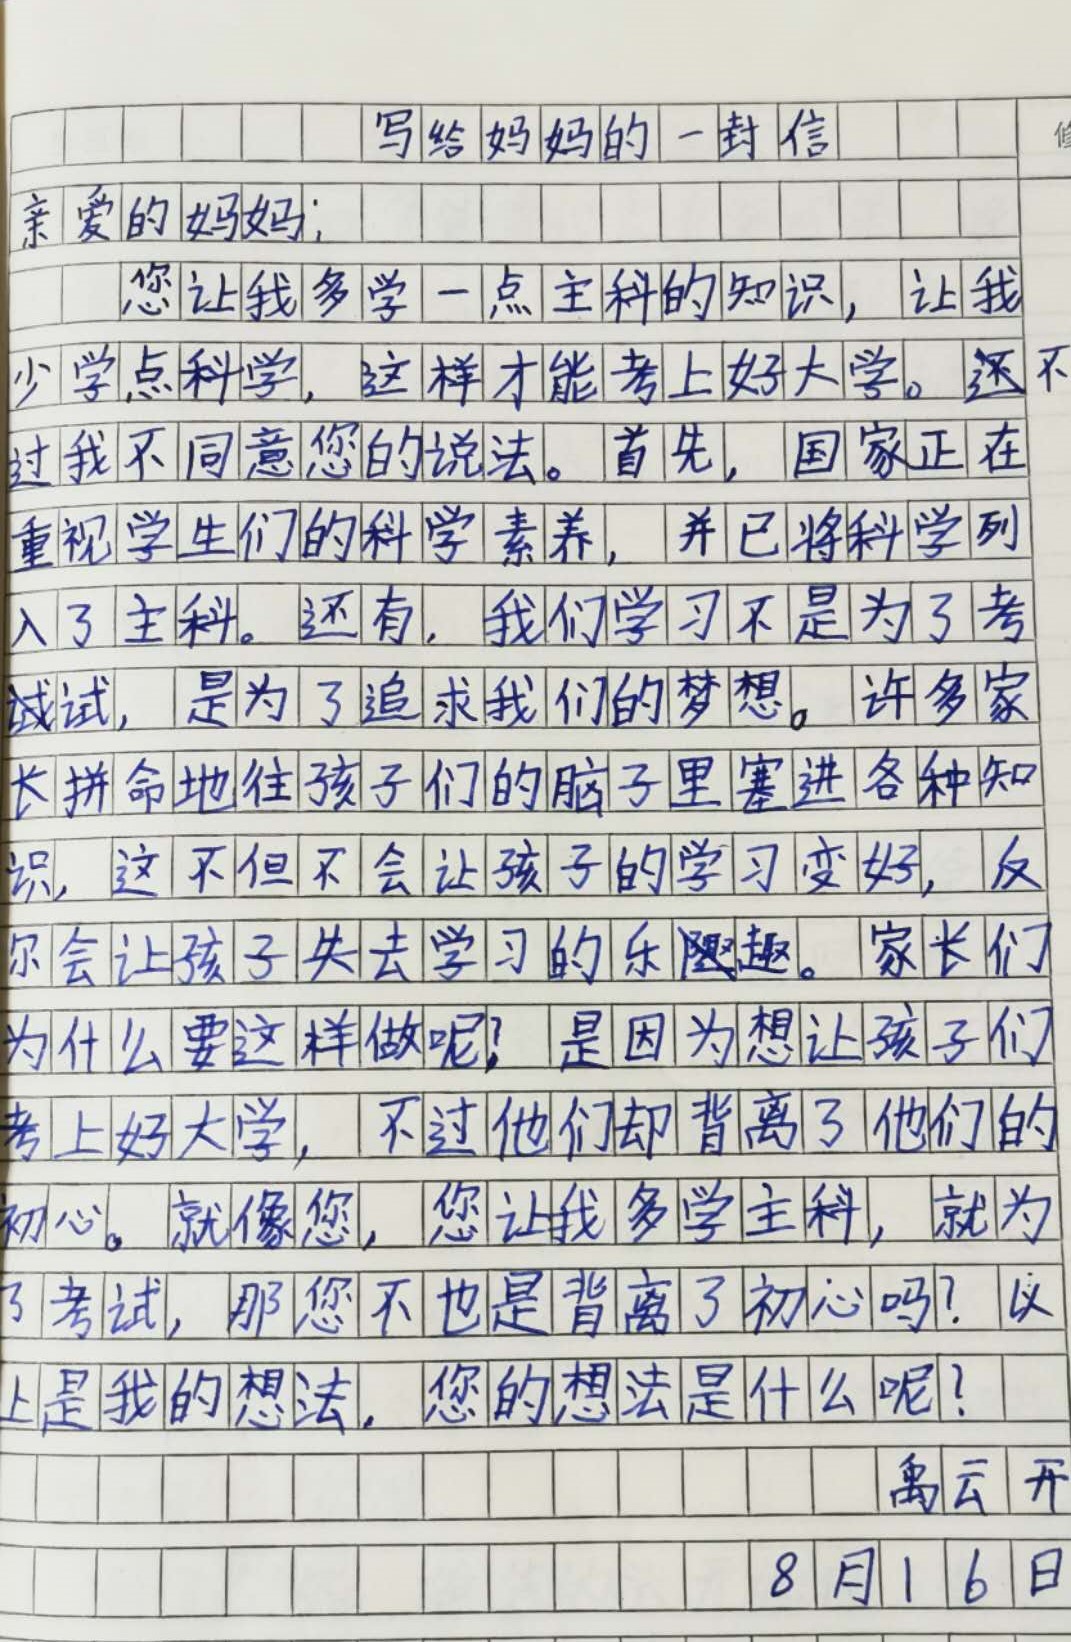 写给妈妈的一封信
亲爱的妈妈:
您让我多学一点主科的知识，让我
少学点科学，这样才能考上好大学。不
过我不同意您的说法。首先，国家正在
重视学生们的科学素养，并已将科学列
入了主科。还有，我们学习不是为了考
试试，是为了追求我们的梦想。许多家
长拼命地往孩子们的脑子里塞进各种知
识，这不但不会让孩子的学习变好，反
尔会让孩子失去学习的乐趣。家长们
为什么要这样做呢？是因为想让孩子们
考上好大学，不过他们却背离了他们的
初心。就像您，您让我多学主科，就为
了考试，那您不也是背离了初心吗？以
上是我的想法，您的想法是什么呢？
禹云开
8月16日